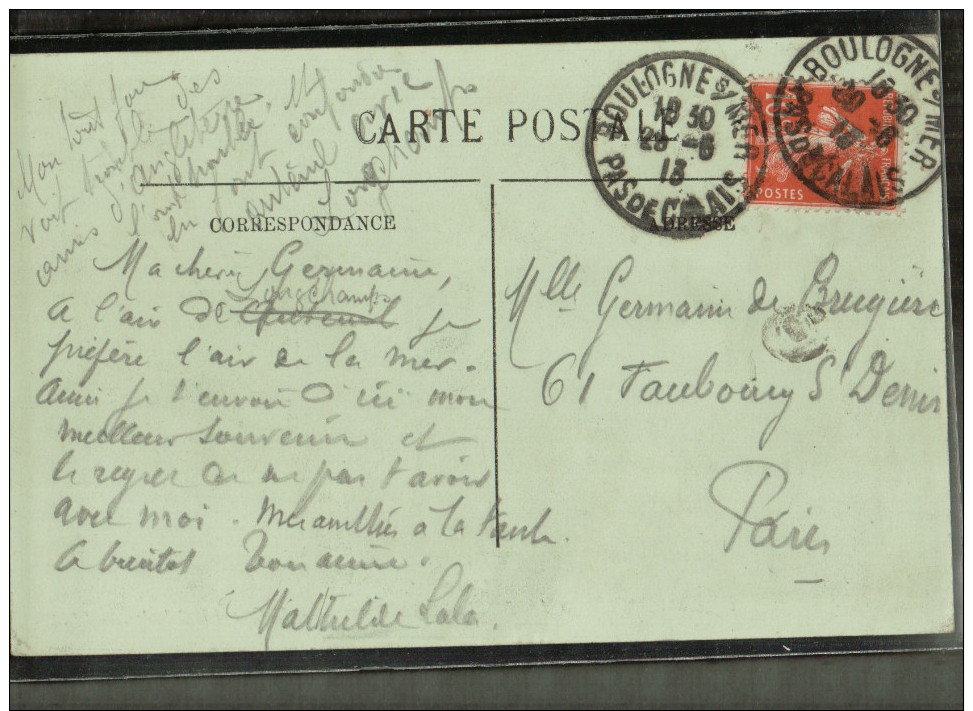 Mon tout
voit trouble des
amis d'Angleterre
l'ont
en font confondre
auteuil avec
Longchamps
CARTE POSTALE
CORRESPONDANCE
ADRESSE
BOULOGNE S/MER
18 30
28 -6
13
PAS DE CALAIS
BOULOGNE S/MER
18 30
13
PAS DE CALAIS
10
POSTES
Ma cherie Germaine,
Longchamps
a l'air de Auteuil je
préfère l'air de la mer.
Aussi je t'envoie d'ici mon
meilleur souvenir et
le regret de ne pas t'avoir
avec moi. Mes amitiés à la tante.
A bientôt Ton amie.
Mathilde Lala.
Mlle Germaine de Brugière
61 Faubourg St Denis
Paris